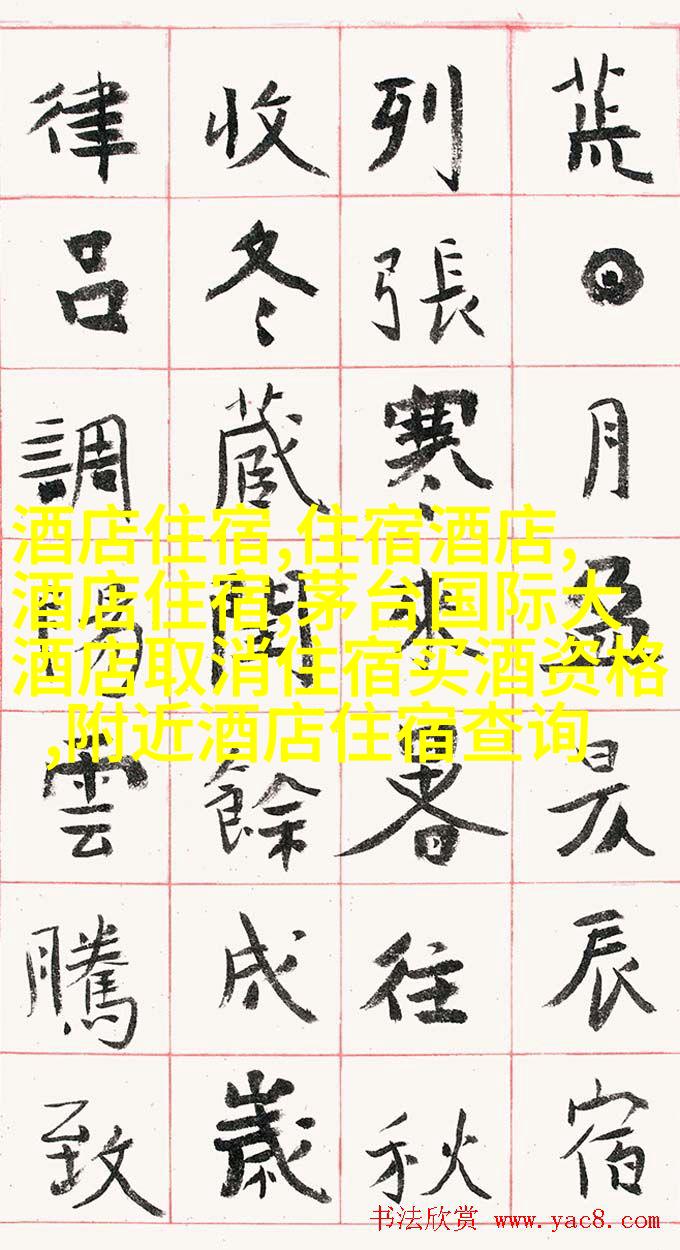 荒日月盈昃辰宿
列張寒來暑往秋
收冬藏閏餘成歲
律呂調陽雲騰致
酒店住宿,住宿酒店,
酒店住宿,茅台国际大
酒店取消住宿买酒资格
,附近酒店住宿查询
书法欣赏 www.yac8.com